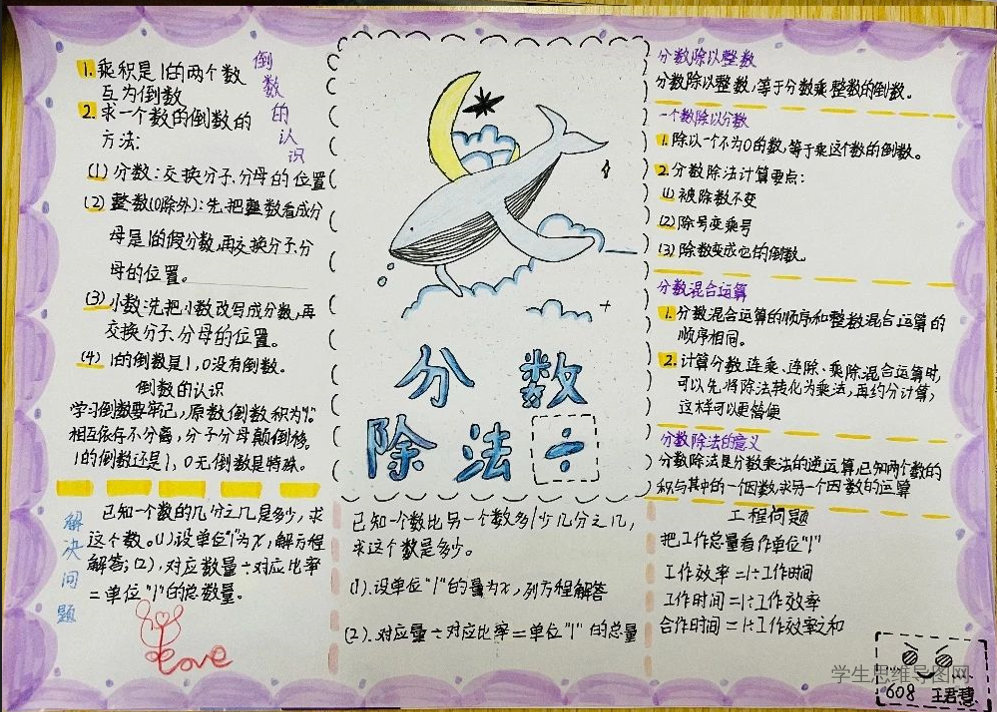 倒数的认识
1.乘积是1的两个数
互为倒数
2.求一个数的倒数的
方法：
(1)分数：交换分子、分母的位置
(2)整数(0除外)：先把整数看成分
母是1的假分数,再交换分子、分
母的位置。
(3)小数:先把小数改写成分数,再
交换分子、分母的位置。
(4)1的倒数是1,0没有倒数。
倒数的认识
学习倒数要牢记,原数倒数积为"1"。
相互依存不分离,分子分母颠倒移。
1的倒数还是1,0无倒数是特殊。
解决问题
已知一个数的几分之几是多少,求
这个数。(1)设单位"1"为x,解方程
解答;(2),对应数量÷对应比率
=单位"1"的总数量。
Love
分数
除法÷
已知一个数比另一个数多/少几分之几,
求这个数是多少。
(1).设单位"1"的量为x,列方程解答
(2).对应量÷对应比率=单位"1"的总量
分数除以整数
分数除以整数,等于分数乘整数的倒数。
一个数除以分数
1.除以一个不为0的数,等于乘这个数的倒数。
2.分数除法计算要点：
(1)被除数不变
(2)除号变乘号
(3)除数变成它的倒数。
分数混合运算
1.分数混合运算的顺序和整数混合运算的
顺序相同。
2.计算分数连乘、连除、乘除混合运算时,
可以先将除法转化为乘法,再约分计算,
这样可以更简便
分数除法的意义
分数除法是分数乘法的逆运算,已知两个数的
积与其中的一个因数,求另一个因数的运算
工程问题
把工作总量看作单位"1"
工作效率=1÷工作时间
工作时间=1÷工作效率
合作时间=1÷工作效率之和
学生思维导图网
608 王君慧